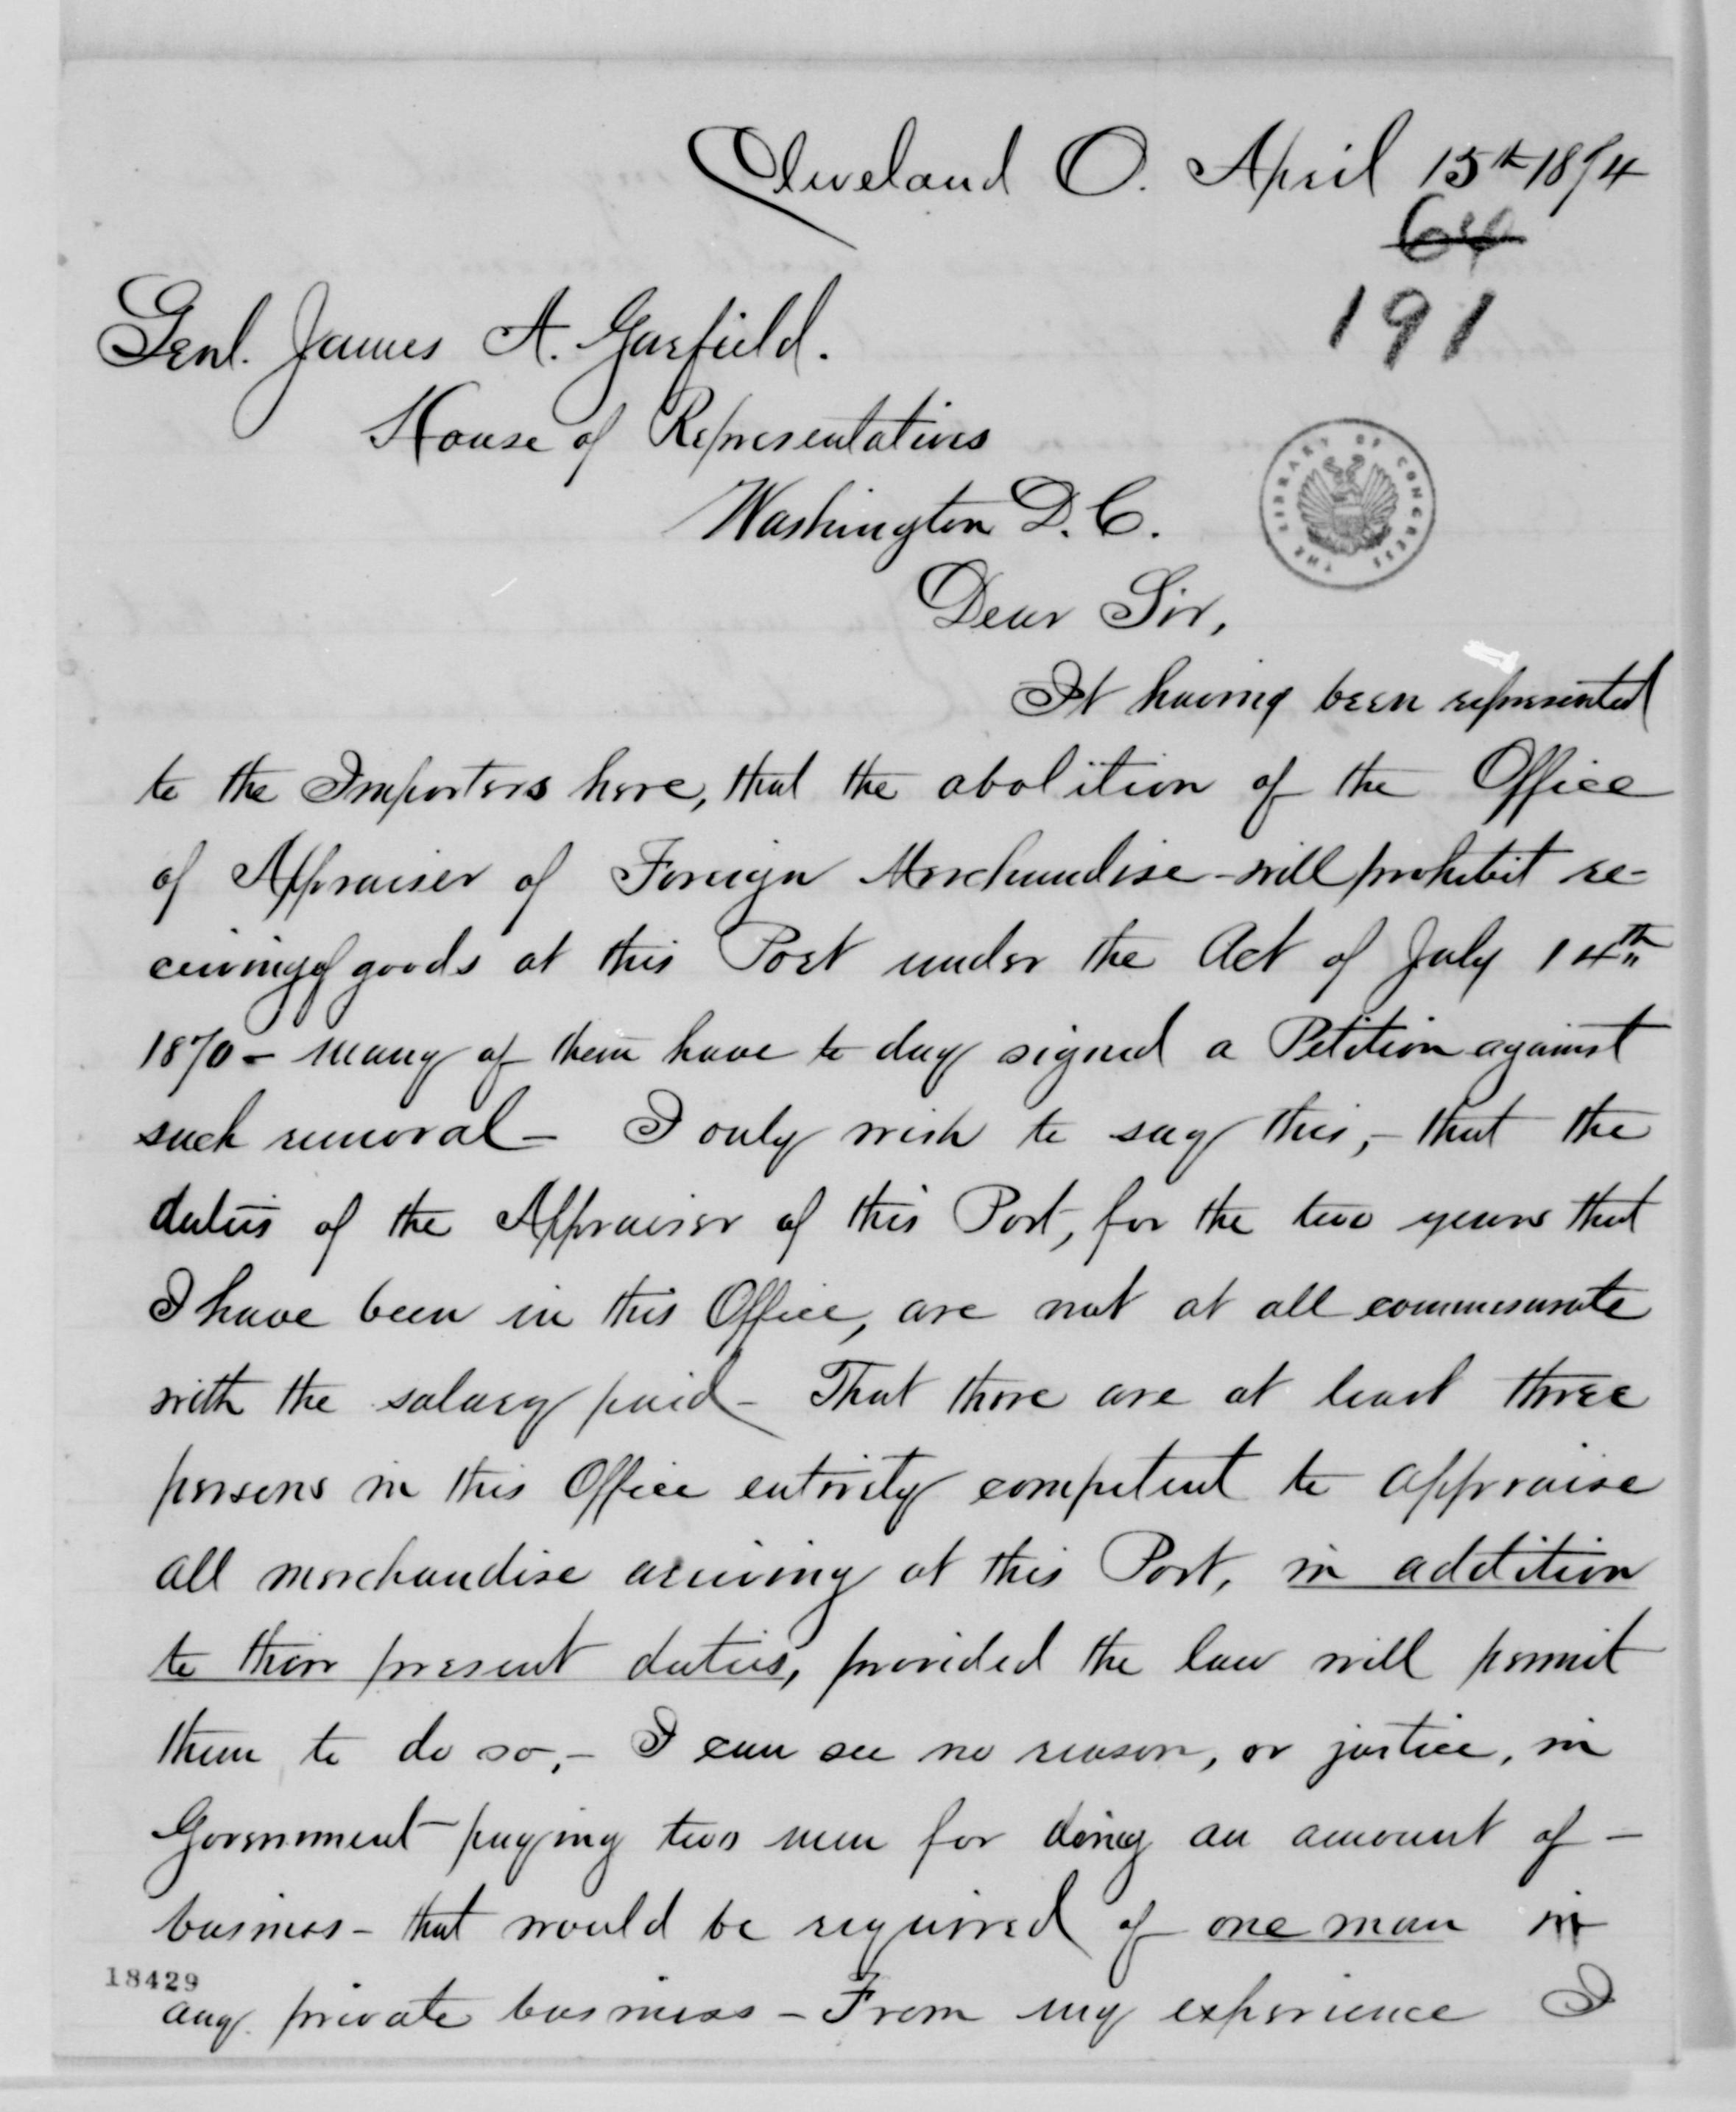 Cleveland O. April 15th 1874
64
191
Genl. James A. Garfield.
House of Representatives
Washington D.C.
THE LIBRARY OF CONGRESS
Dear Sir,
It having been represented
to the Importers here, that the abolition of the Office
of Appraiser of Foreign Merchandise - will prohibit re-
ceiving of goods at this Port under the Act of July 14th
1870 - many of them have to day signed a Petition against
such removal - I only wish to say this, - that the
duties of the Appraiser of this Port, for the two years that
I have been in this Office, are not at all commesurate
with the salary paid - That there are at least three
persons in this Office entirely competent to appraise
all merchandise arriving at this Port, in addition
to their present duties, provided the law will permit
them to do so, - I can see no reason, or justice, in
Government paying two men for doing an amount of -
business - that would be required of one man in
18429
any private business - From my experience I